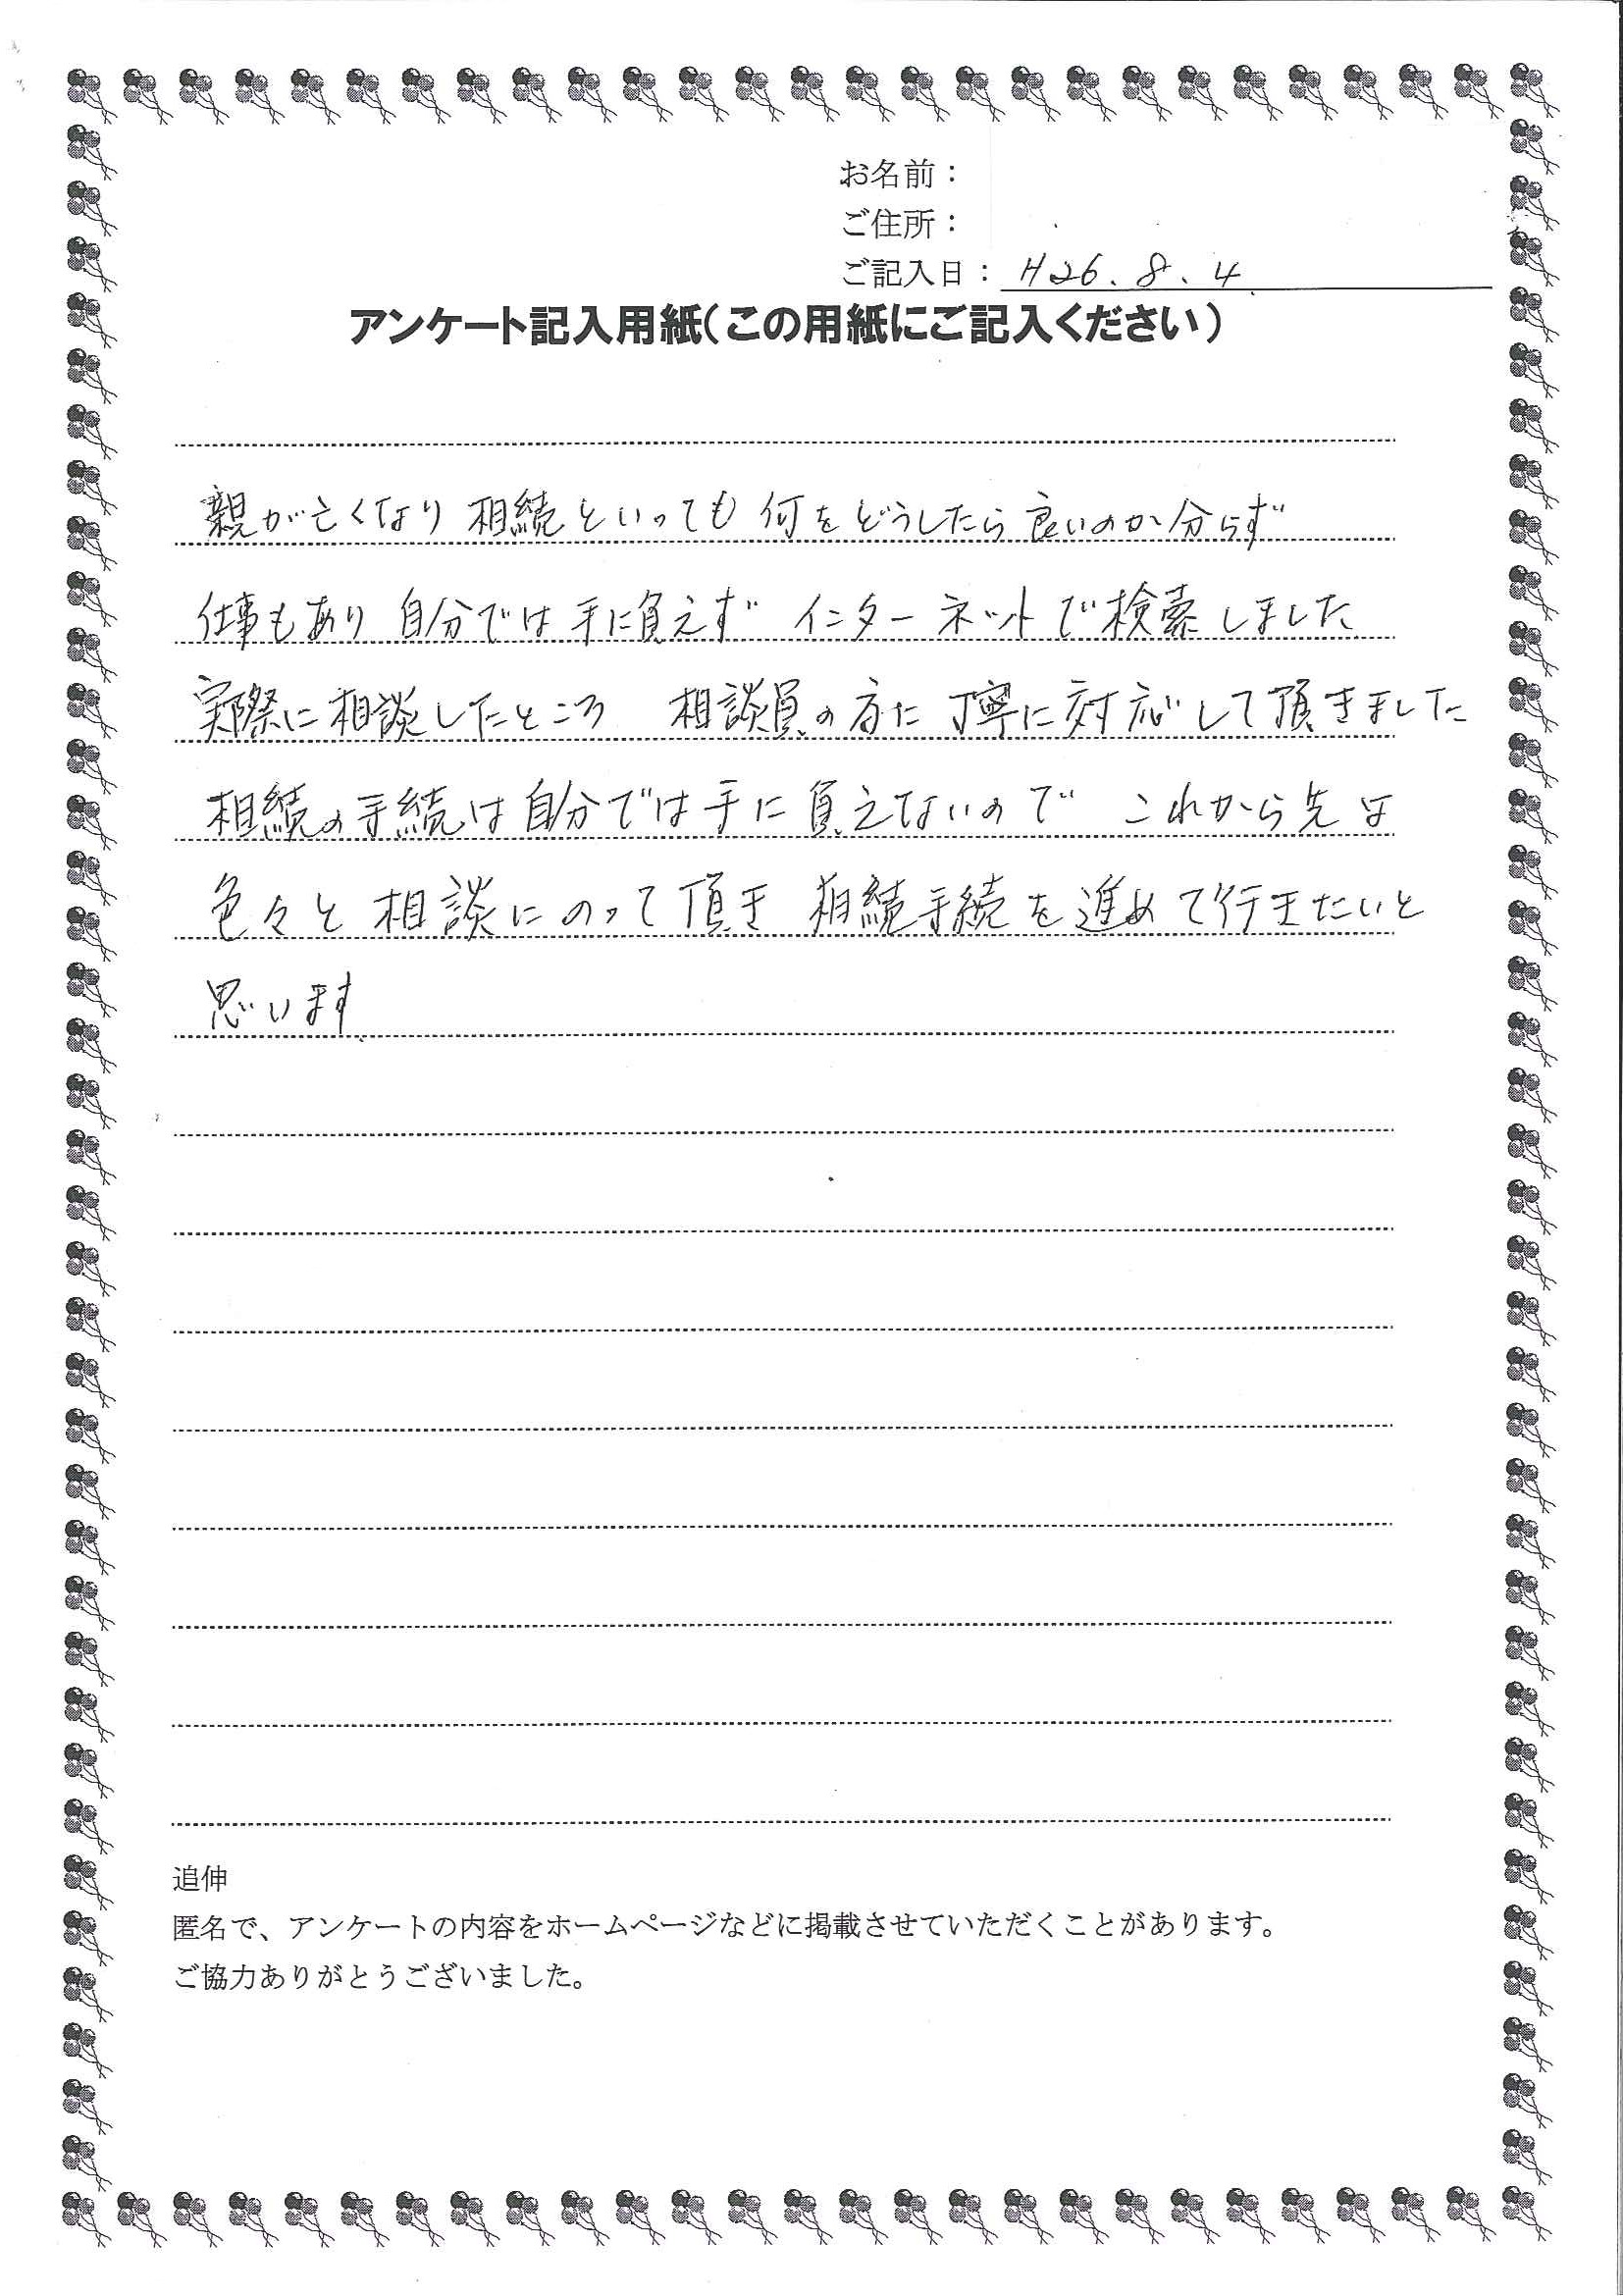 お名前：
ご住所：
ご記入日：H26.8.4
アンケート記入用紙（この用紙にご記入ください）
親が亡くなり 相続といっても 何をどうしたら良いのか分らず
仕事もあり 自分では手に負えず インターネットで検索しました
実際に相談したところ 相談員の方に丁寧に対応して頂きました
相続の手続は自分では手に負えないので これから先は
色々と相談にのって頂き 相続手続を進めて行きたいと
思います
追伸
匿名で、アンケートの内容をホームページなどに掲載させていただくことがあります。
ご協力ありがとうございました。